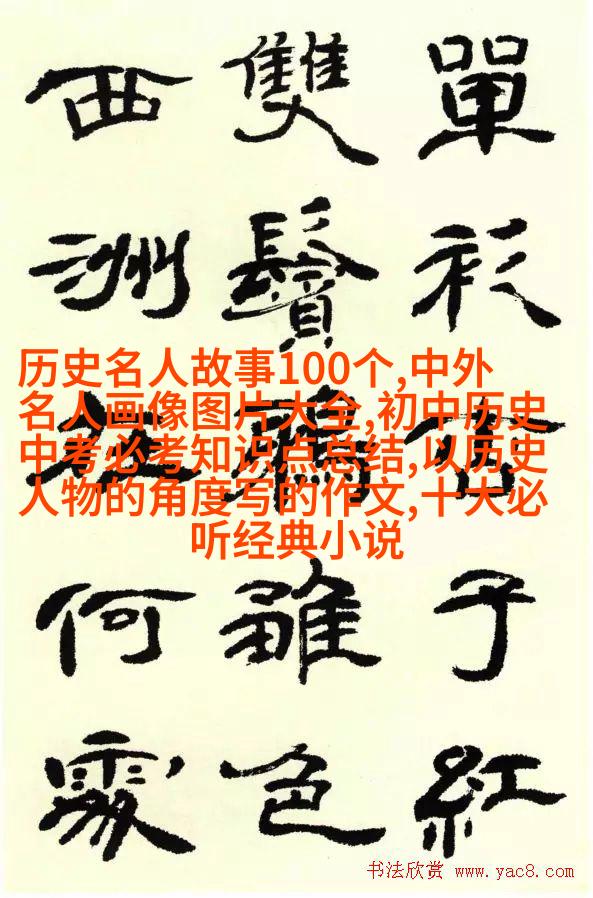 單衫杏子紅
雙鬢鴉雛色
西洲在何處
历史名人故事100个,中外
名人画像图片大全,初中历史
中考必考知识点总结,以历史
人物的角度写的作文,十大必
听经典小说
书法欣赏 www.yac8.com